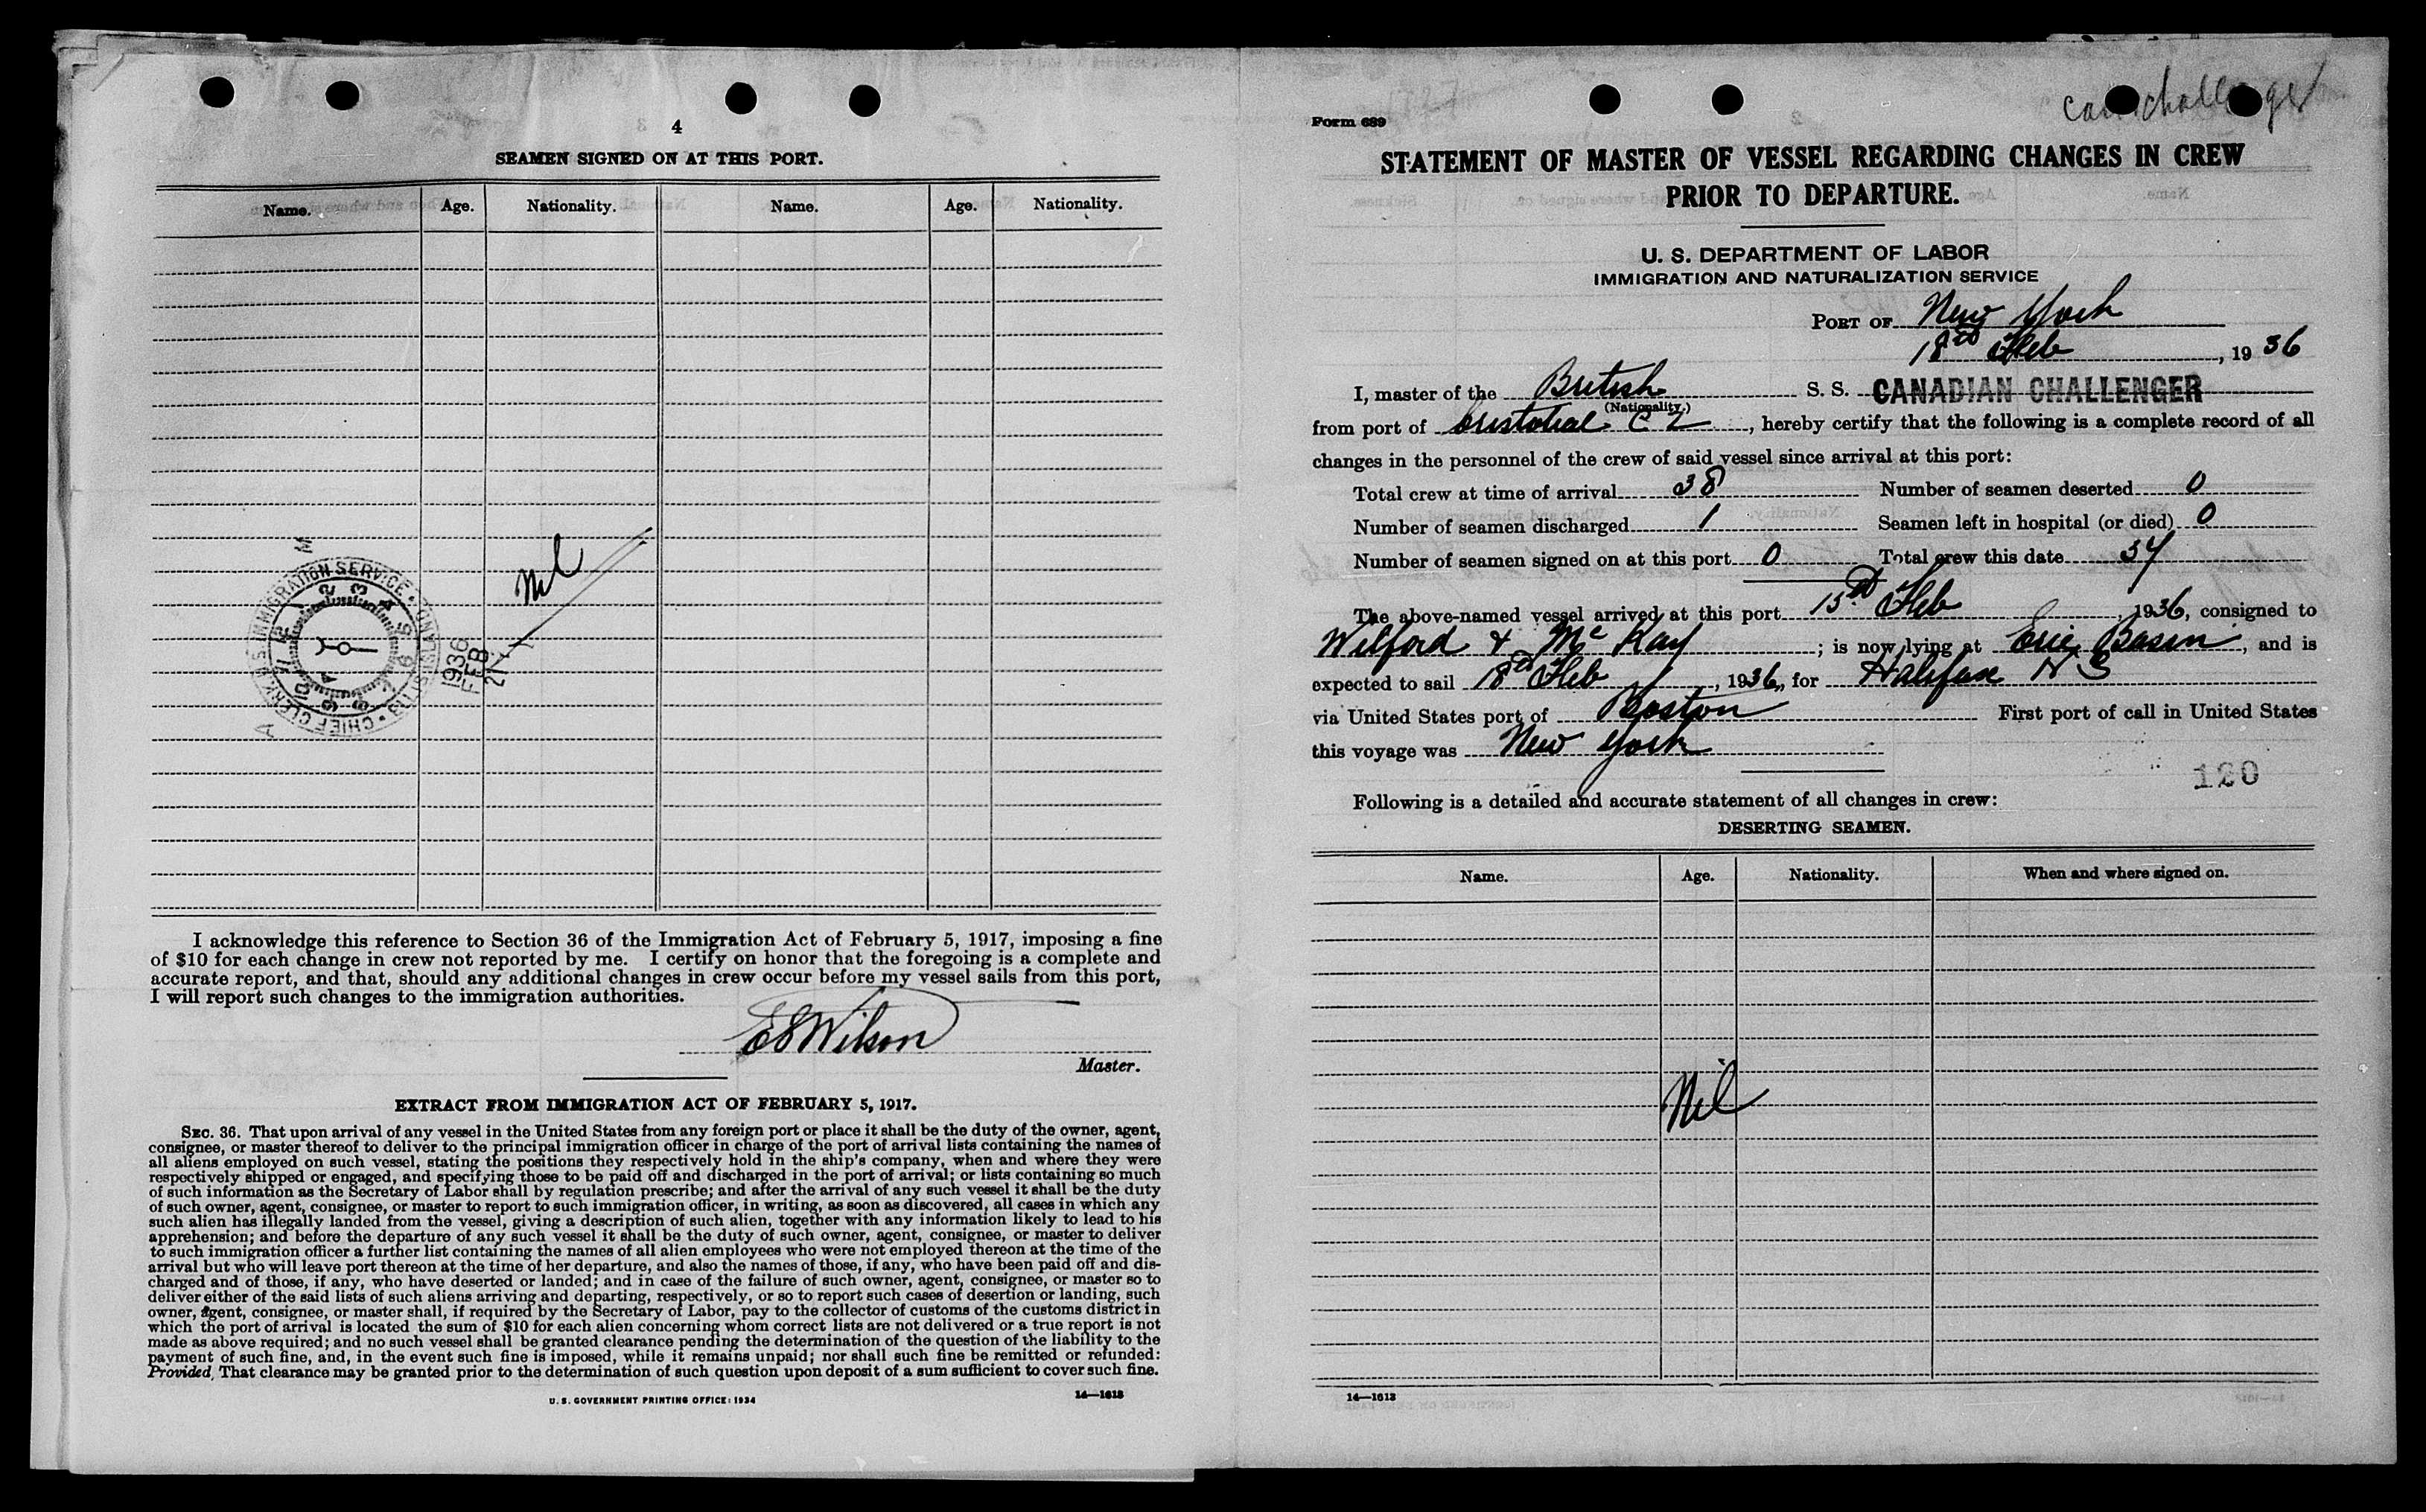 4
SEAMEN SIGNED ON AT THIS PORT.
Name. Age. Nationality. Name. Age. Nationality.
Nil
U.S. IMMIGRATION SERVICE
CHIEF CLERK
1936
FEB
21
I acknowledge this reference to Section 36 of the Immigration Act of February 5, 1917, imposing a fine
of $10 for each change in crew not reported by me. I certify on honor that the foregoing is a complete and
accurate report, and that, should any additional changes in crew occur before my vessel sails from this port,
I will report such changes to the immigration authorities.
E S Wilson
Master.
EXTRACT FROM IMMIGRATION ACT OF FEBRUARY 5, 1917.
SEC. 36. That upon arrival of any vessel in the United States from any foreign port or place it shall be the duty of the owner, agent,
consignee, or master thereof to deliver to the principal immigration officer in charge of the port of arrival lists containing the names of
all aliens employed on such vessel, stating the positions they respectively hold in the ship's company, when and where they were
respectively shipped or engaged, and specifying those to be paid off and discharged in the port of arrival; or lists containing so much
of such information as the Secretary of Labor shall by regulation prescribe; and after the arrival of any such vessel it shall be the duty
of such owner, agent, consignee, or master to report to such immigration officer, in writing, as soon as discovered, all cases in which any
such alien has illegally landed from the vessel, giving a description of such alien, together with any information likely to lead to his
apprehension; and before the departure of any such vessel it shall be the duty of such owner, agent, consignee, or master to deliver
to such immigration officer a further list containing the names of all alien employees who were not employed thereon at the time of the
arrival but who will leave port thereon at the time of her departure, and also the names of those, if any, who have been paid off and dis-
charged and of those, if any, who have deserted or landed; and in case of the failure of such owner, agent, consignee, or master so to
deliver either of the said lists of such aliens arriving and departing, respectively, or so to report such cases of desertion or landing, such
owner, agent, consignee, or master shall, if required by the Secretary of Labor, pay to the collector of customs of the customs district in
which the port of arrival is located the sum of $10 for each alien concerning whom correct lists are not delivered or a true report is not
made as above required; and no such vessel shall be granted clearance pending the determination of the question of the liability to the
payment of such fine, and, in the event such fine is imposed, while it remains unpaid; nor shall such fine be remitted or refunded:
Provided, That clearance may be granted prior to the determination of such question upon deposit of a sum sufficient to cover such fine.
U. S. GOVERNMENT PRINTING OFFICE: 1934 14—1613
Can challenger
Form 689
STATEMENT OF MASTER OF VESSEL REGARDING CHANGES IN CREW
PRIOR TO DEPARTURE.
U. S. DEPARTMENT OF LABOR
IMMIGRATION AND NATURALIZATION SERVICE
PORT OF New York
18th Feb, 1936
I, master of the British S. S. CANADIAN CHALLENGER
(Nationality.)
from port of Cristobal C Z, hereby certify that the following is a complete record of all
changes in the personnel of the crew of said vessel since arrival at this port:
Total crew at time of arrival 38 Number of seamen deserted 0
Number of seamen discharged 1 Seamen left in hospital (or died) 0
Number of seamen signed on at this port 0 Total crew this date 37
The above-named vessel arrived at this port 15th Feb, 1936, consigned to
Wilford & McKay; is now lying at Erie Basin, and is
expected to sail 18th Feb, 1936, for Halifax N S
via United States port of Boston First port of call in United States
this voyage was New York
120
Following is a detailed and accurate statement of all changes in crew:
DESERTING SEAMEN.
Name. Age. Nationality. When and where signed on.
Nil
14—1613